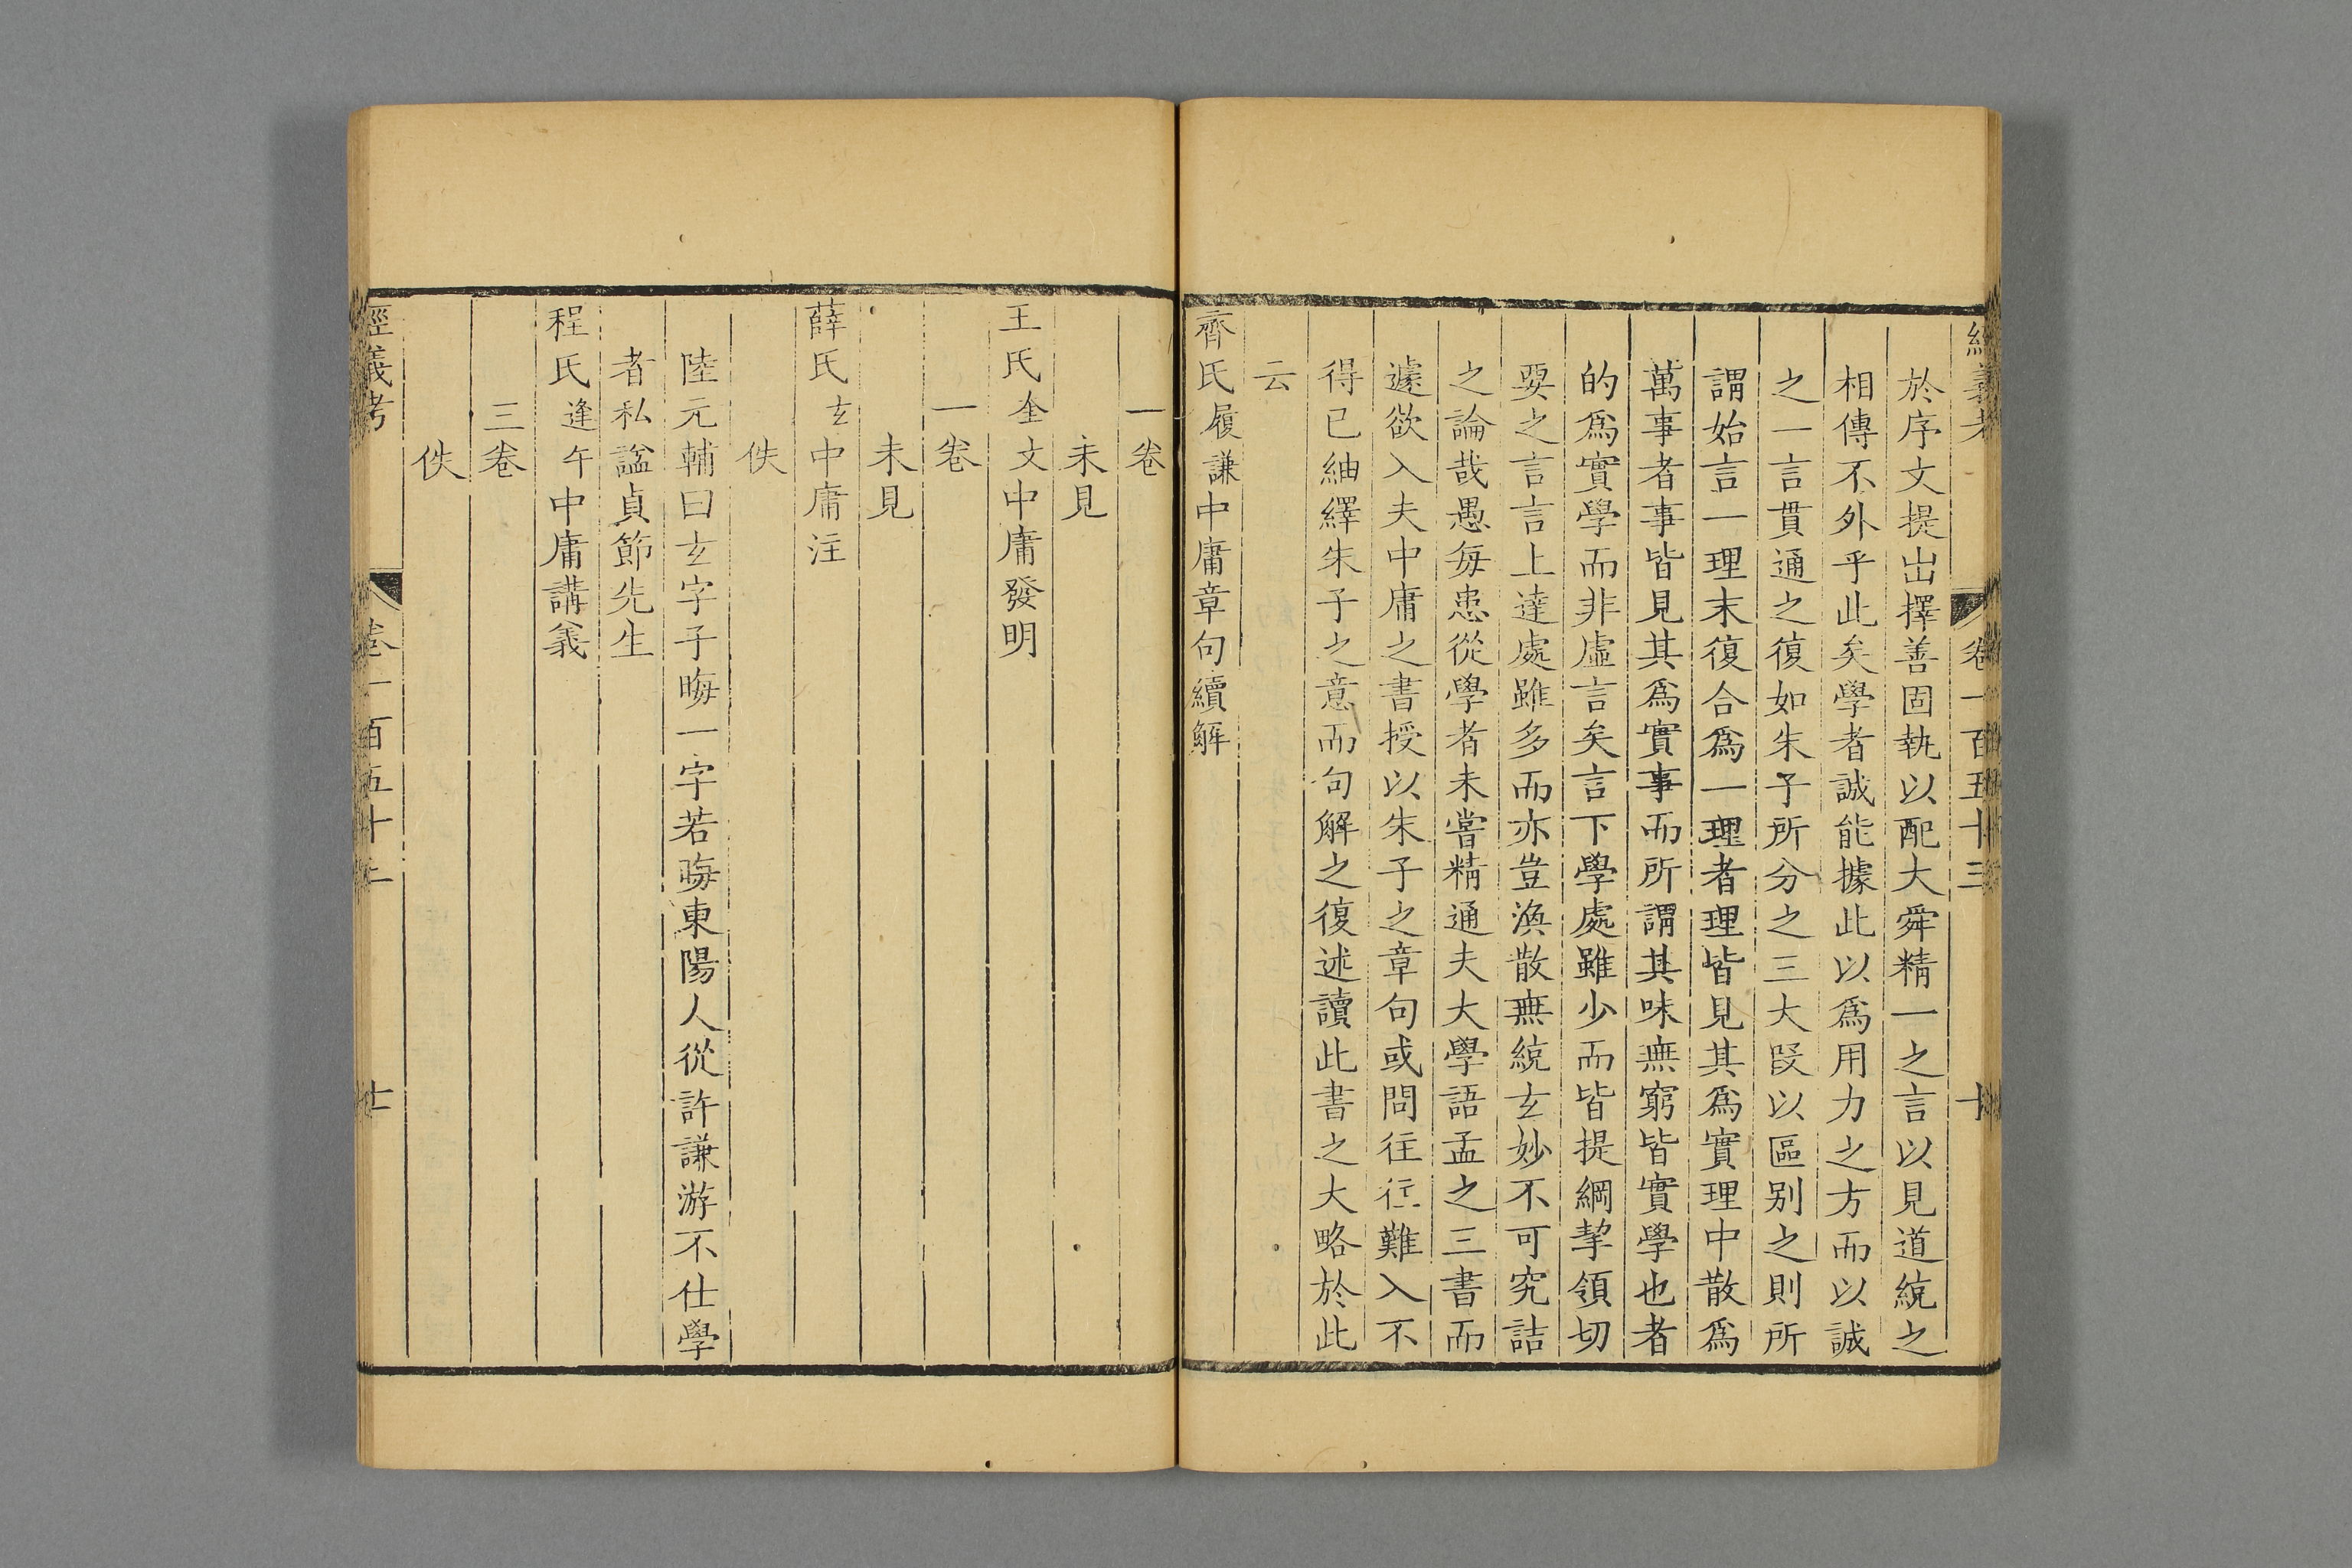 經義考 卷一百五十三 十
於序文提出擇善固執以配大舜精一之言以見道統之
相傳不外乎此矣學者誠能據此以爲用力之方而以誠
之一言貫通之復如朱子所分之三大段以區别之則所
謂始言一理末復合爲一理者理皆見其爲實理中散爲
萬事者事事皆見其爲實事而所謂其味無窮皆實學也者
的爲實學而非虛言矣言下學處雖少而皆提綱挈領切
要之言言上達處雖多而亦豈渙散無統玄妙不可究詰
之論哉愚每患從學者未嘗精通夫大學語孟之三書而
遽欲入夫中庸之書授以朱子之章句或問往往難入不
得已紬繹朱子之意而句解之復述讀此書之大略於此
云
齊氏履謙中庸章句續解
一卷
未見
王氏奎文中庸發明
一卷
未見
薛氏玄中庸注
佚
陸元輔曰玄字子晦一字若晦東陽人從許謙游不仕學
者私諡貞節先生
程氏逢午中庸講義
三卷
佚
經義考 卷一百五十三 十一